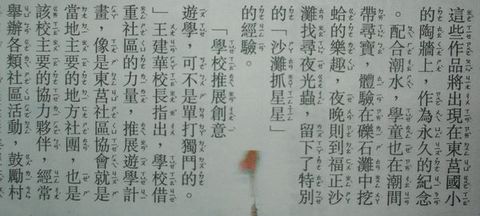 這些作品將出現在東莒國小
的陶牆上，作為永久的紀念
。配合潮水，學童也在潮間
帶尋寶，體驗在礫石灘中挖
蛤的樂趣，夜晚則到福正沙
灘找尋夜光蟲，留下了特別
的「沙灘抓星星」
的經驗。
「學校推展創意
遊學，可不是單打獨鬥的。
」王建華校長指出，學校借
重社區的力量，推展遊學計
畫，像是東莒社區協會就是
當地主要的地方社團，也是
該校主要的協力夥伴，經常
舉辦各類社區活動，鼓勵村